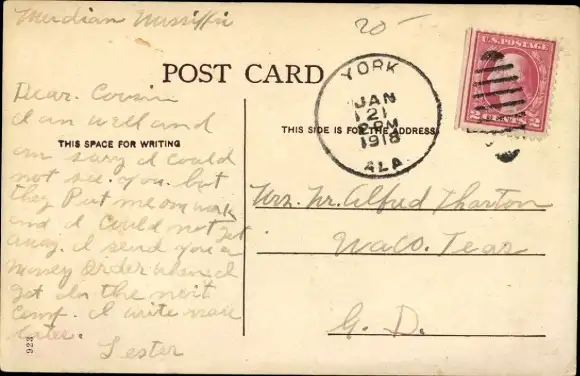 Meridian Mississippi
20-
POST CARD
YORK
JAN
21
PM
1918
ALA.
U.S. POSTAGE
2 CENTS 2
THIS SPACE FOR WRITING
THIS SIDE IS FOR THE ADDRESS
Dear. Cousin
I am well and
am sory I could
not see. you. but
they Put me on work
and I Could not get
away. I send you a
Money Order when I
get in the next
Camp. I write more
later.
Lester
Alfred Tharton
Waco. Texas
G. D.
923